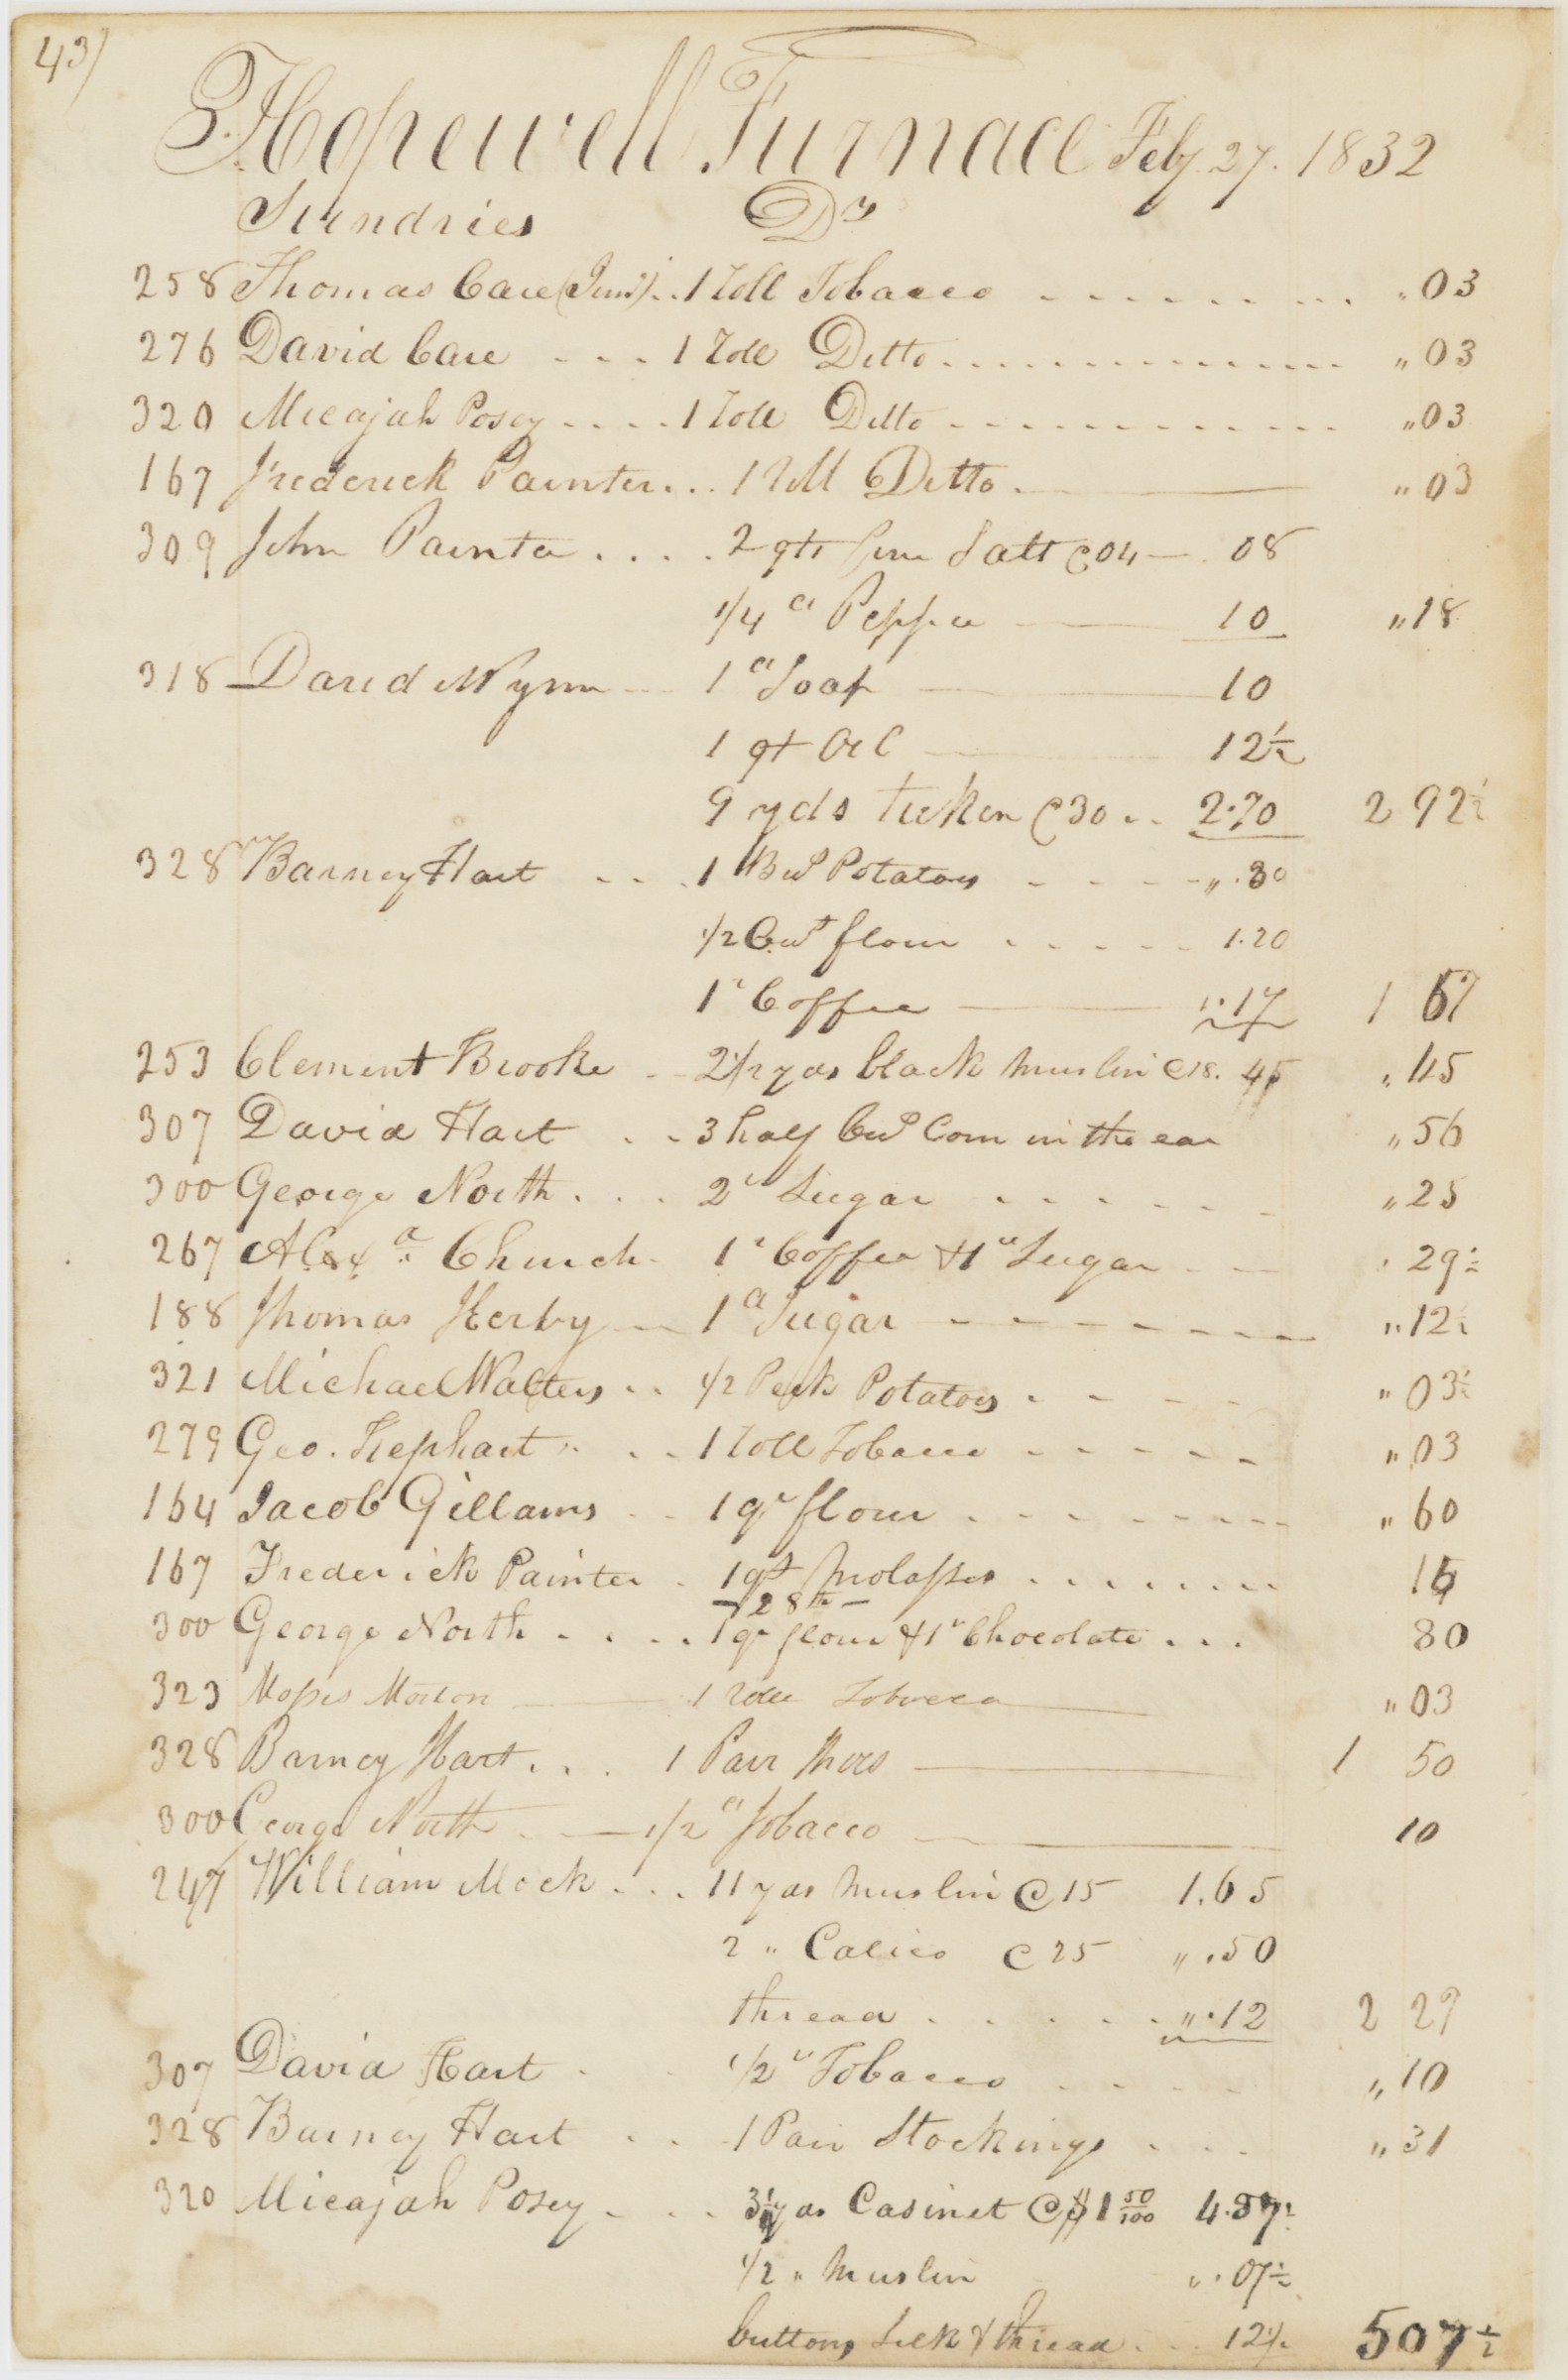 43)
Hopewell Furnace Feby. 27. 1832
Sundries Dr
258 Thomas Care (Junr) .. 1 Roll Tobacco " 03
276 David Care - - - 1 Roll Ditto " 03
320 Micajah Posey - - - - 1 Roll Ditto " 03
167 Frederick Painter... 1 Roll Ditto " 03
309 John Painter . . . . 2 qts fine Salt @ 04 — 08
1/4 " Pepper — 10 " 18
318 David Wynn — 1 " Soap — 10
1 qt Oil — 12½
9 yds ticken @ 30 .. 2.70 2 92½
328 Barney Hart - - . 1 Bus Potatoes - - - - " .30
1/2 Cwt flour . . . . . 1.20
1 " Coffee — " .17 1 67
253 Clement Brooke - 2 1/2 yds black muslin @ 18. 45 " 45
307 David Hart . . 3 half Bus Corn in the ear " 56
300 George North . . . 2 " Sugar . . . . . . " 25
267 Alexr Church. 1 " Coffee & 1 " Sugar - - 29½
188 Thomas Kerby — 1 " Sugar " 12½
321 Michael Walters .. 1/2 Peck Potatoes . - - - " 03½
279 Geo. Kephart . . . 1 Roll Tobacco - - - - - " 03
164 Jacob Gillams . . 1 qr flour . . . . . . " 60
167 Frederick Painter . 1 qt Molasses . . . . . . 15
— 28th —
300 George North . . . . 1 qr flour & 1 " Chocolate . . . 80
323 Moses Morton — 1 Roll Tobacco — " 03
328 Barney Hart . . . 1 Pair Shoes — 1 50
300 George North — 1/2 " Tobacco — 10
247 William Mock . . . 11 yds muslin @ 15 1.65
2 " Calico @ 25 " .50
thread . . . . . " .12 2 27
307 David Hart . 1/2 " Tobacco . . . . " 10
328 Barney Hart . . . 1 Pair Stockings . . . " 31
320 Micajah Posey . . . 3¼ yds Casinet @ $1 50/100 4.87½
1/2 " muslin " .07½
buttons, silk & thread . . . 12½ 507½